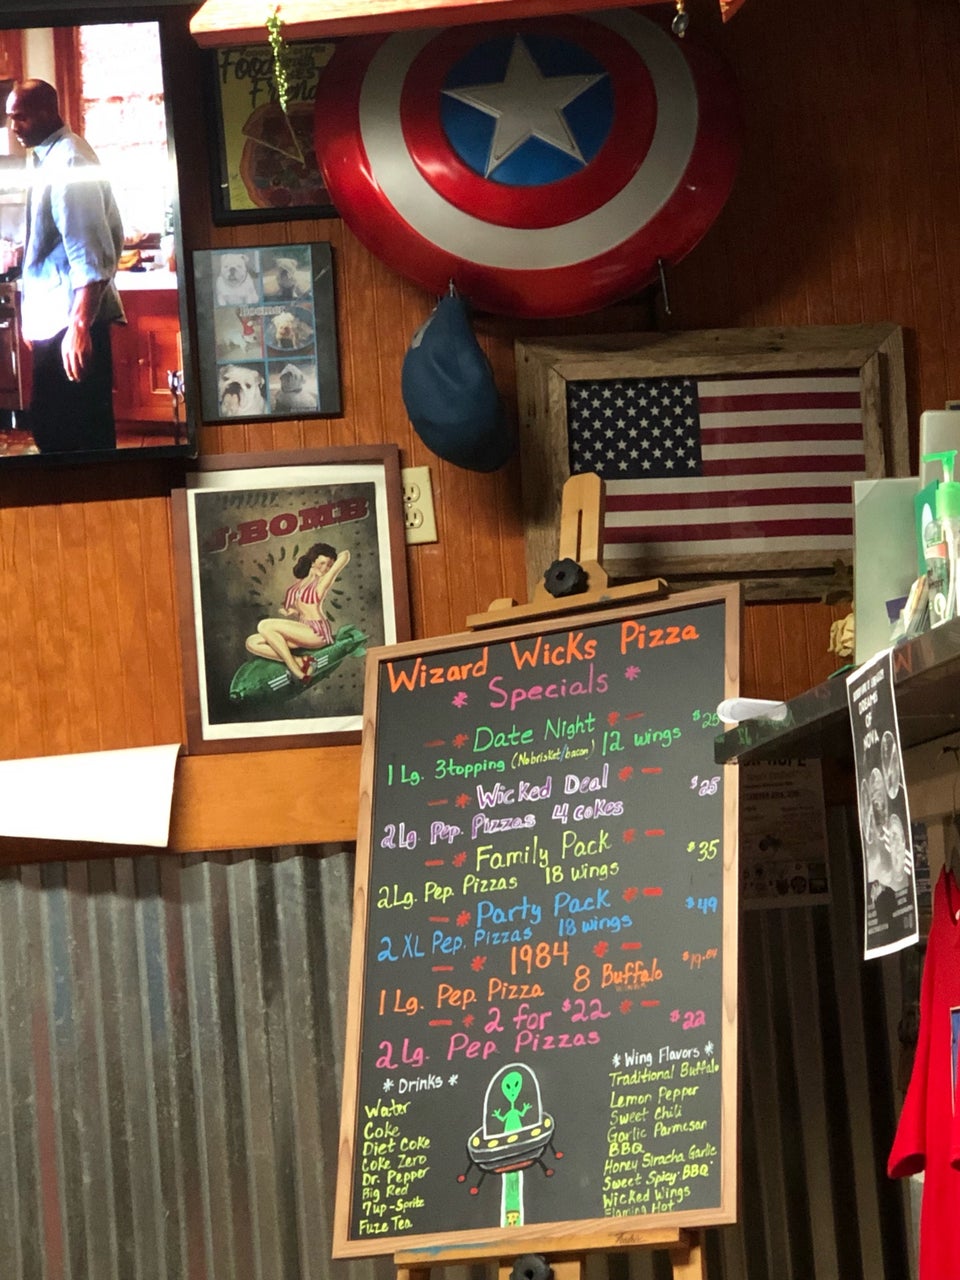 Food
Friend
Boomer
J-BOMB
Wizard Wicks Pizza
* Specials *
- * Date Night * - $25
1 Lg. 3topping (No brisket/bacon) 12 wings
- * Wicked Deal * - $25
2 Lg. Pep. Pizzas 4 cokes
- * Family Pack * - $35
2 Lg. Pep. Pizzas 18 wings
- * Party Pack * - $49
2 XL Pep. Pizzas 18 wings
- * 1984 * - $19.84
1 Lg. Pep. Pizza 8 Buffalo
- * 2 for $22 * - $22
2 Lg. Pep Pizzas
* Drinks *
Water
Coke
Diet Coke
Coke Zero
Dr. Pepper
Big Red
7up-Spritz
Fuze Tea
* Wing Flavors *
Traditional Buffalo
Lemon Pepper
Sweet Chili
Garlic Parmesan
BBQ
Honey Siracha Garlic
Sweet Spicy BBQ
Wicked Wings
Flaming Hot
DREAMS
OF
NOVA